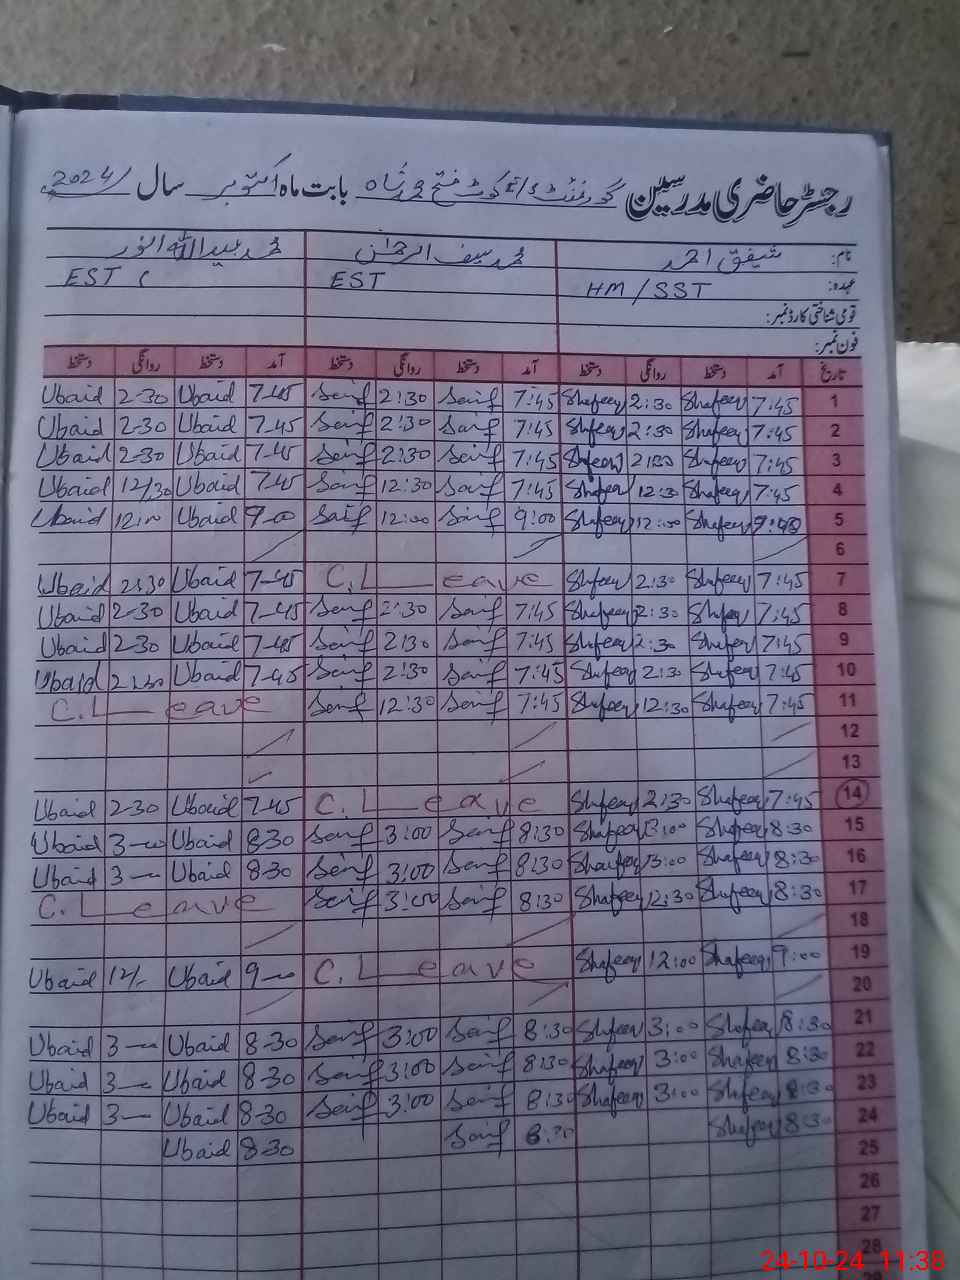 رجسٹر حاضری مدرسین گورنمنٹ کوٹ فتح محمد شاہ بابت ماہ اکتوبر سال 2024/
نام: شفیق احمد محمد سیف الرحمٰن محمد عبیداللہ انور
عہدہ: HM/SST EST EST
قومی شناختی کارڈ نمبر:
فون نمبر:
تاریخ آمد دستخط روانگی دستخط آمد دستخط روانگی دستخط آمد دستخط روانگی دستخط
1 7:45 Shafeeq 2:30 Shafeeq 7:45 Saif 2:30 Saif 7-45 Ubaid 2-30 Ubaid
2 7:45 Shafeeq 2:30 Shafeeq 7:45 Saif 2:30 Saif 7-45 Ubaid 2-30 Ubaid
3 7:45 Shafeeq 2:30 Shafeeq 7:45 Saif 2:30 Saif 7-45 Ubaid 2-30 Ubaid
4 7:45 Shafeeq 12:30 Shafeeq 7:45 Saif 12:30 Saif 7-45 Ubaid 12/30 Ubaid
5 Shafeeq 12:00 Shafeeq 9:00 Saif 12:00 Saif 9-00 Ubaid 12:00 Ubaid
6
7 7:45 Shafeeq 2:30 Shafeeq C.Leave 7-45 Ubaid 2:30 Ubaid
8 7:45 Shafeeq 2:30 Shafeeq 7:45 Saif 2:30 Saif 7-45 Ubaid 2-30 Ubaid
9 7:45 Shafeeq 2:30 Shafeeq 7:45 Saif 2:30 Saif 7-45 Ubaid 2-30 Ubaid
10 7:45 Shafeeq 2:30 Shafeeq 7:45 Saif 2:30 Saif 7-45 Ubaid 2:30 Ubaid
11 7:45 Shafeeq 12:30 Shafeeq 7:45 Saif 12:30 Saif C.Leave
12
13
14 7:45 Shafeeq 2:30 Shafeeq C.Leave 7-45 Ubaid 2-30 Ubaid
15 8:30 Shafeeq 3:00 Shafeeq 8:30 Saif 3:00 Saif 8-30 Ubaid 3-00 Ubaid
16 8:30 Shafeeq 3:00 Shafeeq 8:30 Saif 3:00 Saif 8-30 Ubaid 3-00 Ubaid
17 8:30 Shafeeq 12:30 Shafeeq 8:30 Saif 3:00 Saif C.Leave
18
19 9:00 Shafeeq 12:00 Shafeeq C.Leave 9-00 Ubaid 12/- Ubaid
20
21 8:30 Shafeeq 3:00 Shafeeq 8:30 Saif 3:00 Saif 8-30 Ubaid 3-00 Ubaid
22 8:30 Shafeeq 3:00 Shafeeq 8:30 Saif 3:00 Saif 8-30 Ubaid 3-00 Ubaid
23 8:30 Shafeeq 3:00 Shafeeq 8:30 Saif 3:00 Saif 8-30 Ubaid 3-00 Ubaid
24 8:30 Shafeeq 8:30 Saif 8-30 Ubaid
25
26
27
28
24-10-24 11:38